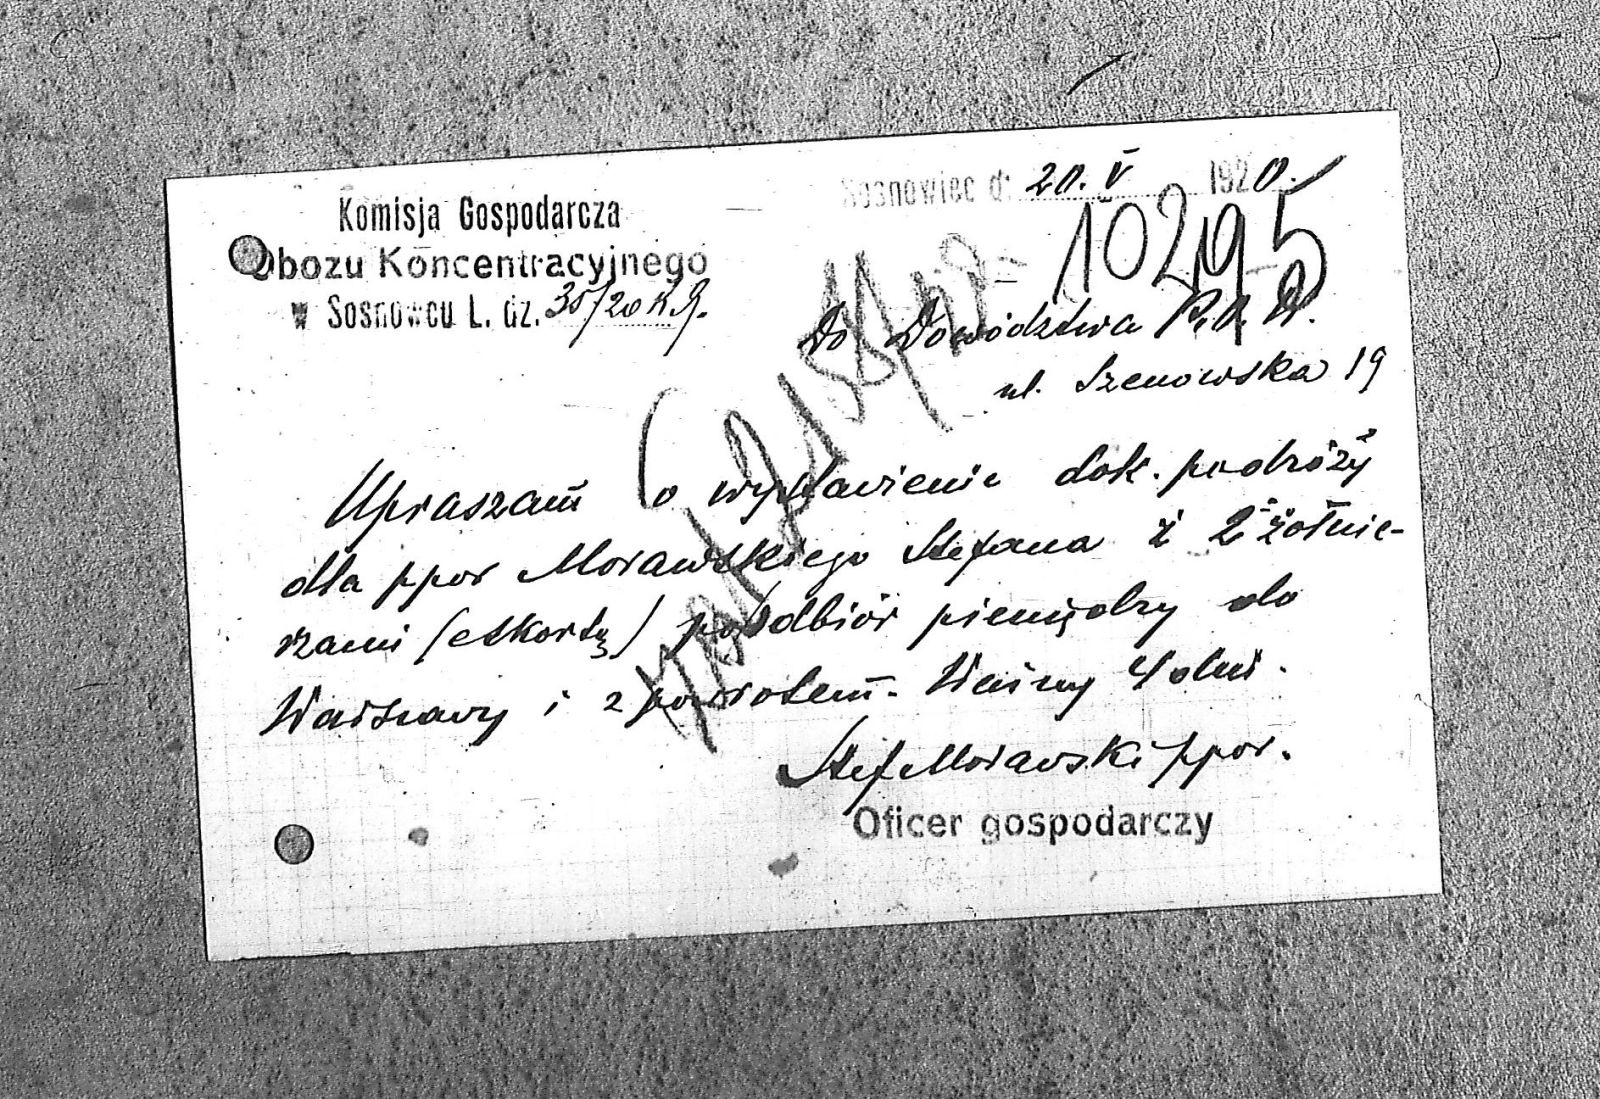 Komisja Gospodarcza
Obozu Koncentracyjnego
w Sosnowcu L. dz. 35/20 K.G.
Sosnowiec d: 20. V 1920.
10295
Do Dowództwa
ul. Szenowska 19
Upraszam o wystawienie dok. podróży
dla ppor Morawskiego Stefana z 2 żołnie-
rzami (eskortą) po odbiór pieniędzy do
Warszawy i z powrotem. Ważny 4 dni.
Stef Morawski ppor.
Oficer gospodarczy